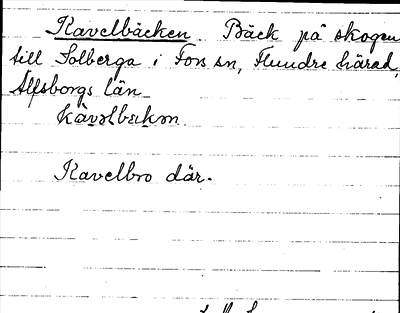 Kavelbäcken Bäck på skogen
till Solberga i Fors sn, Flundre härad,
Älfsborgs län
Kavelbro där.